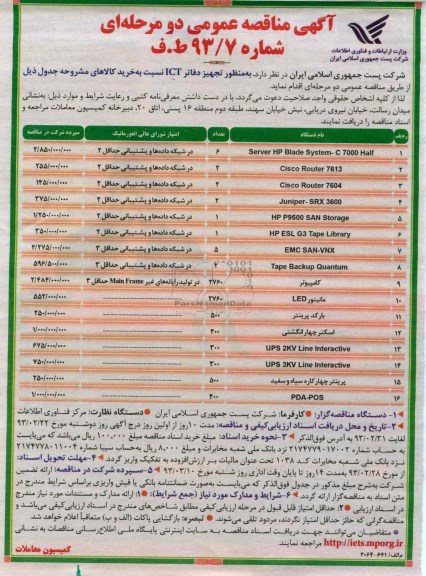 آگهی مناقصه عمومی دو مرحله‌ای
شماره ۹۳/۷ ط.ف
وزارت ارتباطات و فناوری اطلاعات
شرکت پست جمهوری اسلامی ایران
شرکت پست جمهوری اسلامی ایران در نظر دارد، به‌منظور تجهیز دفاتر ICT نسبت به‌خرید کالاهای مشروحه جدول ذیل
از طریق مناقصه عمومی دو مرحله‌ای اقدام نماید.
لذا از کلیه اشخاص حقوقی واجد صلاحیت دعوت می‌گردد، با در دست داشتن معرفی‌نامه کتبی و رعایت شرایط و موارد ذیل، به‌نشانی
میدان رسالت، خیابان نیروی دریایی، نبش خیابان سهند، طبقه دوم منطقه ۱۶ پستی، اتاق ۲۰، دبیرخانه کمیسیون معاملات مراجعه و
اسناد مناقصه را دریافت نمایند.
ردیف نام دستگاه تعداد امتیاز شورای عالی انفورماتیک سپرده شرکت در مناقصه
۱ Server HP Blade System- C 7000 Half ۶ در شبکه داده‌ها و پشتیبانی حداقل ۲ ۲/۸۵۰/۰۰۰/۰۰۰
۲ Cisco Router 7613 ۲ در شبکه داده‌ها و پشتیبانی حداقل ۲ ۲۵۵/۰۰۰/۰۰۰
۳ Cisco Router 7604 ۲ در شبکه داده‌ها و پشتیبانی حداقل ۲ ۱۴۵/۰۰۰/۰۰۰
۴ Juniper- SRX 3600 ۲ در شبکه داده‌ها و پشتیبانی حداقل ۲ ۳۷۵/۰۰۰/۰۰۰
۵ HP P9500 SAN Storage ۱ در شبکه داده‌ها و پشتیبانی حداقل ۲ ۱/۲۵۰/۰۰۰/۰۰۰
۶ HP ESL G3 Tape Library ۱ در شبکه داده‌ها و پشتیبانی حداقل ۲ ۳۵۰/۰۰۰/۰۰۰
۷ EMC SAN-VNX ۵ در شبکه داده‌ها و پشتیبانی حداقل ۳ ۴/۲۷۵/۰۰۰/۰۰۰
۸ Tape Backup Quantum ۴ در شبکه داده‌ها و پشتیبانی حداقل ۳ ۵۹۶/۵۰۰/۰۰۰
۹ کامپیوتر ۲۷۶۰ در تولید رایانه‌های غیر Main Frame حداقل ۳ ۲/۴۸۴/۰۰۰/۰۰۰
۱۰ مانیتور LED ۲۷۶۰ ۵۵۲/۰۰۰/۰۰۰
۱۱ بارکد پرینتر ۵۰۰ ۲۵۰/۰۰۰/۰۰۰
۱۲ اسکنر چهار انگشتی ۴۰۰ ۱/۰۰۰/۰۰۰/۰۰۰
۱۳ UPS 2KV Line Interactive ۳۰۰ ۶۷۵/۰۰۰/۰۰۰
۱۴ UPS 3KV Line Interactive ۳۰۰ ۷۵۰/۰۰۰/۰۰۰
۱۵ پرینتر چهارکاره سیاه و سفید ۵۰۰ ۲۵۰/۰۰۰/۰۰۰
۱۶ PDA-POS ۴۰۰ ۱/۰۰۰/۰۰۰/۰۰۰
۱- دستگاه مناقصه‌گزار: کارفرما: شرکت پست جمهوری اسلامی ایران دستگاه نظارت: مرکز فن‌آوری اطلاعات
۲- تاریخ و محل دریافت اسناد ارزیابی کیفی و مناقصه: مدت ۱۰ روز از اولین روز درج آگهی روز دوشنبه مورخ ۹۳/۰۲/۲۲
لغایت ۹۳/۰۲/۳۱ به آدرس فوق‌الذکر ۳- نحوه خرید اسناد: مبلغ خرید اسناد مناقصه مبلغ ۱۰۰,۰۰۰ ریال می‌باشد که می‌بایست
به حساب شماره ۲۱۷۴۷۷۹۰۱۷۰۰۲ نزد بانک ملی شعبه مخابرات و مبلغ ۸,۰۰۰ ریال به‌حساب سیبا شماره
نزد بانک ملی شعبه مخابرات کد ۱۰۳۸ تحت عنوان مالیات بر ارزش افزوده به تفکیک واریز گردد. ۴- مهلت تحویل اسناد:
از مورخ ۹۳/۰۲/۲۸ به‌مدت ۱۴ روز تا پایان وقت اداری روز شنبه مورخ ۹۳/۰۳/۱۰ ۵- سپرده شرکت در مناقصه: ارائه تضمین
شرکت به‌شرح مبلغ مذکور در جدول فوق‌الذکر که می‌بایست به‌صورت ضمانتنامه بانکی یا فیش واریزی براساس شرایط مندرج در
متن اسناد به مناقصه‌گزار ارائه گردد. ۶- شرایط و مدارک مورد نیاز (جمع شرایط): ۱: ارائه مدارک و مستندات مورد نیاز مندرج
در اسناد ارزیابی ۲: حداقل امتیاز قابل قبول در مرحله ارزیابی کیفی مطابق شاخص‌های مندرج در اسناد ارزیابی کیفی می‌باشد و
مناقصه‌گرانی که حائز حداقل امتیاز نگردند، مردود تلقی می‌شوند. تبصره: بازگشایی پاکات (الف و ب) متعاقباً اعلام خواهد شد
متقاضیان می‌توانند جهت دریافت اسناد مناقصه به سایت اینترنتی پایگاه ملی اطلاع‌رسانی مناقصات به نشانی
http://iets.mporg.ir مراجعه نمایند.
کمیسیون معاملات